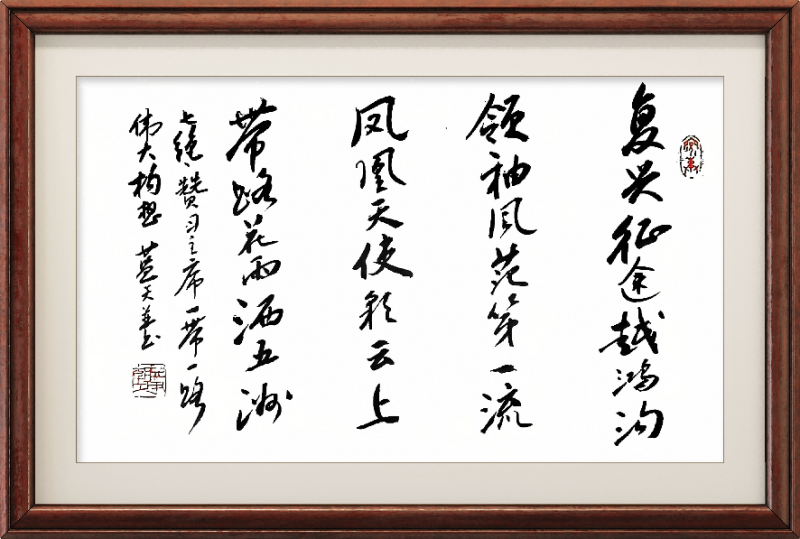 复兴征途越鸿沟
领袖风范第一流
凤凰天使彩云上
带路花雨洒五洲
七绝·赞习主席一带一路
伟大构想 蓝天美书